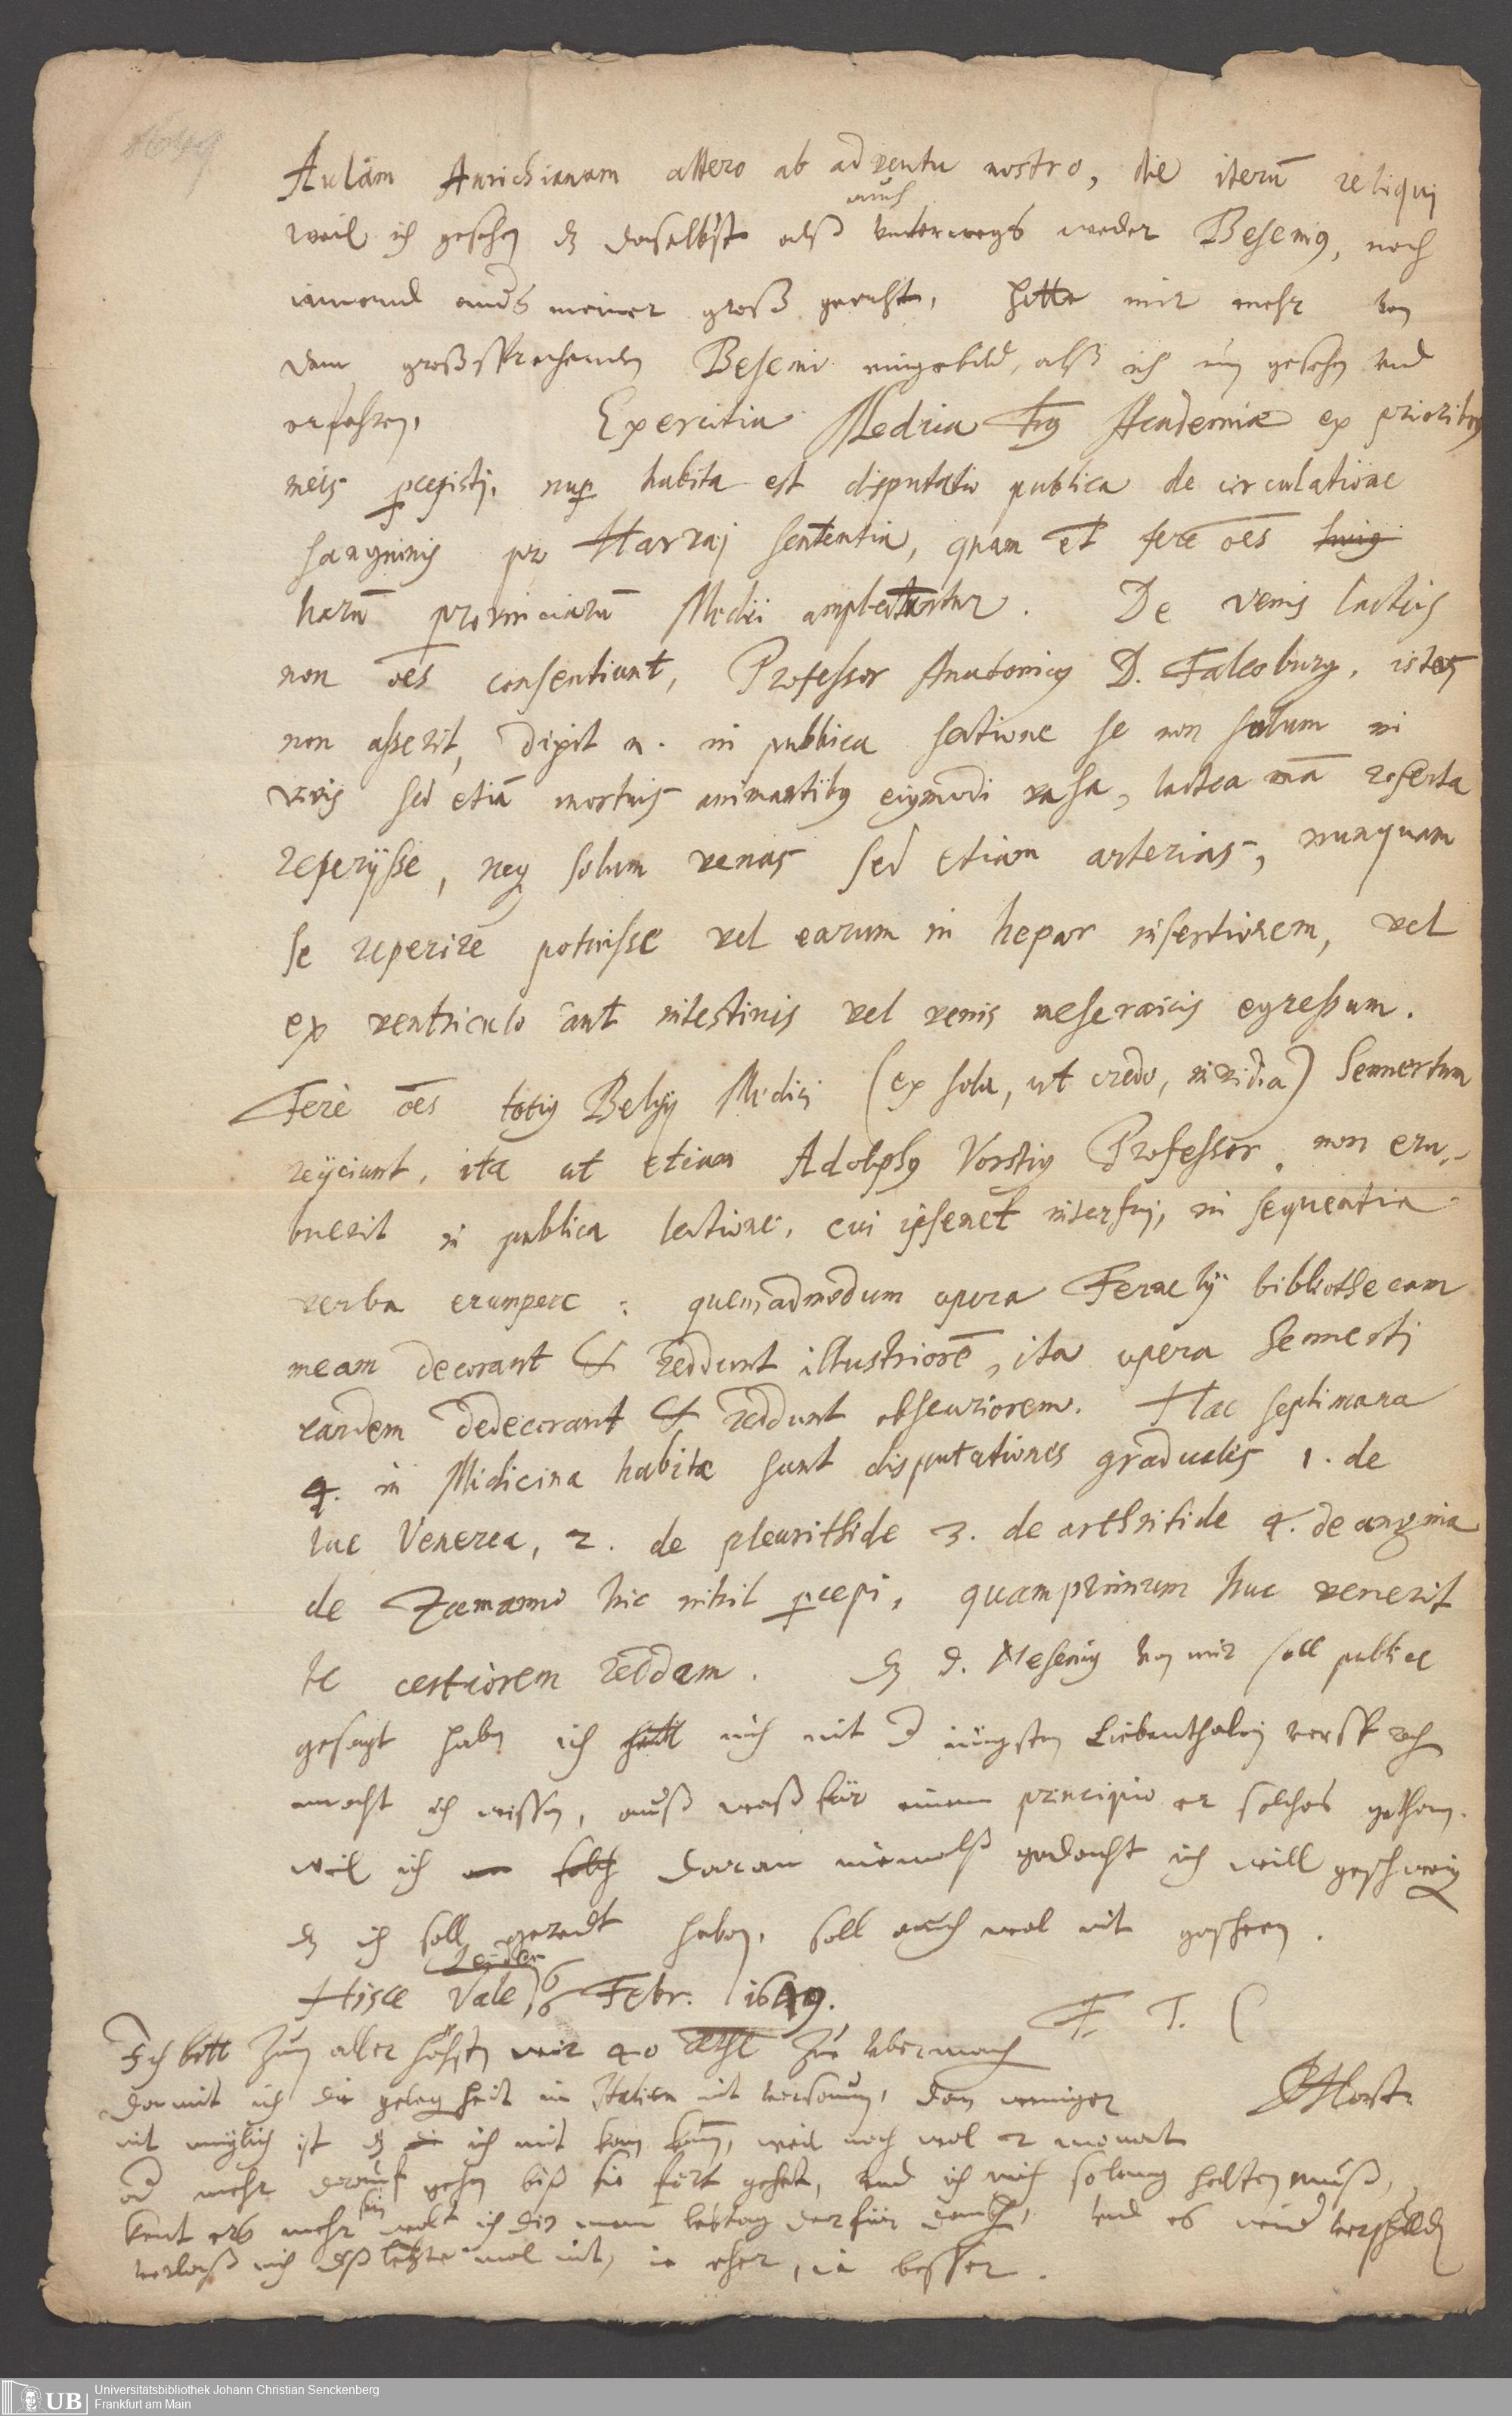 1649
Aulam Aurichianam altero ab adventu nostro, die iterū reliqui
weil ich gesehen dz daselbst alß auch unterwegs weder Beseniq, noch
iemand anders meiner groß geacht, hette mir mehr von
dem großsprechenden Besenio eingebild, alß ich nun gesehen und
erfahren, Exercitia Medica huius Academiæ ex prioribus
meis percepisti, nuper habita est disputatio publica de circulatione
sanguinis pro Harvaej sententia, quam et fere oēs
harū provinciarū Medici amplectuntur. De venis lacteis
non oēs consentiunt, Professor Anatomicus D. Falcoburg. istas
non asserit, dixit n. in publica sectione se non solum in
vivis sed etiā mortuis animantibus eiusmodi vasa, lactea mā referta
reperijsse, neq solum venas sed etiam arterias, nunquam
se reperire potuisse vel earum in hepar insertionem, vel
ex ventriculo aut intestinis vel venis meseraicis egressum.
Ferè oēs totius Belgij Medici (ex sola, ut credo, invidia) Sennertum
reijciunt, ita ut etiam Adolphus Vorstius Professor, non eru-
buerit in publica lectione, cui ipsemet interfui, in sequentia
verba erumpere: quemadmodum opera Fernelij bibliothecam
meam decorant & reddunt illustriorē, ita opera Sennerti
eandem dedecorant & reddunt obscuriorem. Hac septimana
4. in Medicina habitæ sunt disputationes graduales 1. de
lue Venerea, 2. de pleurithide 3. de arthritide 4. de angina
de Zamanno hic nihil percepi, quamprimum huc venerit
te certiorem reddam. dz D. Mesenius von mir soll publice
gesagt haben ich hett mich mit d jüngsten Liebenthalin versproch
mocht ich wissen, auß waß für einem principio er solches gethan.
weil ich daran niemalß gedacht ich will geschweig
dz ich soll geredt haben, soll auch wol nit geschehen.
Hisce Vale Leiden 6/16 Febr. 1649.
F. T. C
Ich bitt zum aller höchsten mir 40 Rthl zu ubermach
damit ich die gelegheit in Italien nit versaum, dan weniger
JHorst.
nit müglich ist dz ich mit kom kan, weil noch wol 2 monat
od mehr drauf gehen biß sie fort gehet, und ich mich solang halten muß,
kent ers mehr sein wolt ich dir mein lebtag darfür danck, und es wied verschuld
verlaß mich dß letzte mal nit, ie eher, ie besser.
UB Universitätsbibliothek Johann Christian Senckenberg
Frankfurt am Main